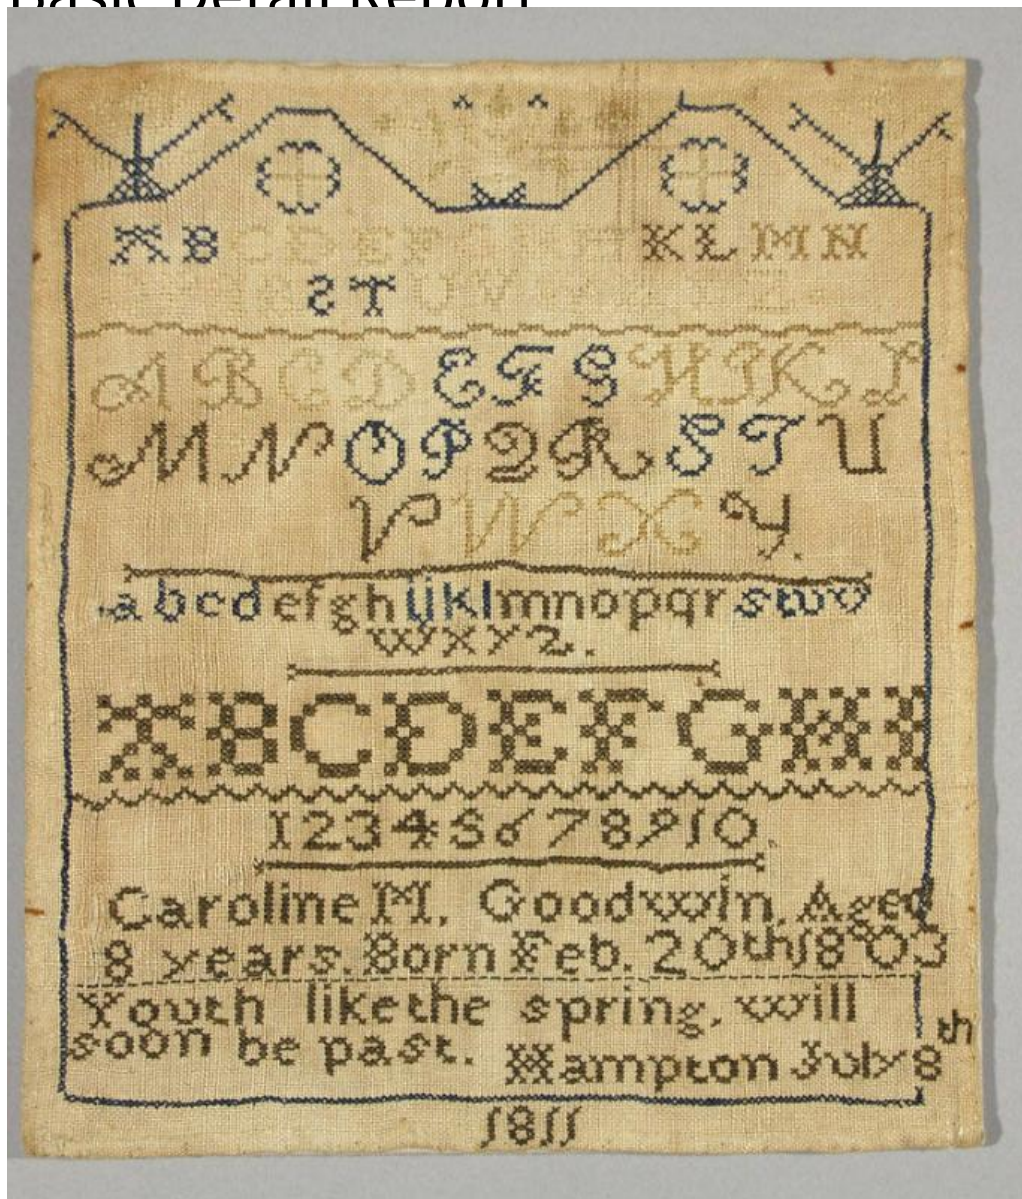 Basic Detail Report
A B C D E F K L M N
S T U V
A B C D E F G H I K L
M N O P Q R S T U
V W X Y.
a b c d e f g h i j k l m n o p q r s t w v
w x y z.
A B C D E F G H I
1 2 3 4 5 6 7 8 9 10
Caroline M. Goodwin. Aged
8 years. Born Feb. 20th 1803
Youth like the spring, will
soon be past. Hampton July 8th
1811